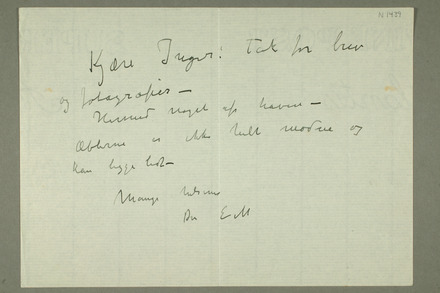 N 1489
Kjære Inger! Tak for brev
og fotografier—
Hermed noget af haven—
Æblerne er ikke helt modne og
kan ligge lidt—
Mange hilsener
Din E M